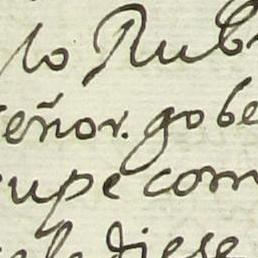 lo Rub
eñor. gobe
upe com
ele diese